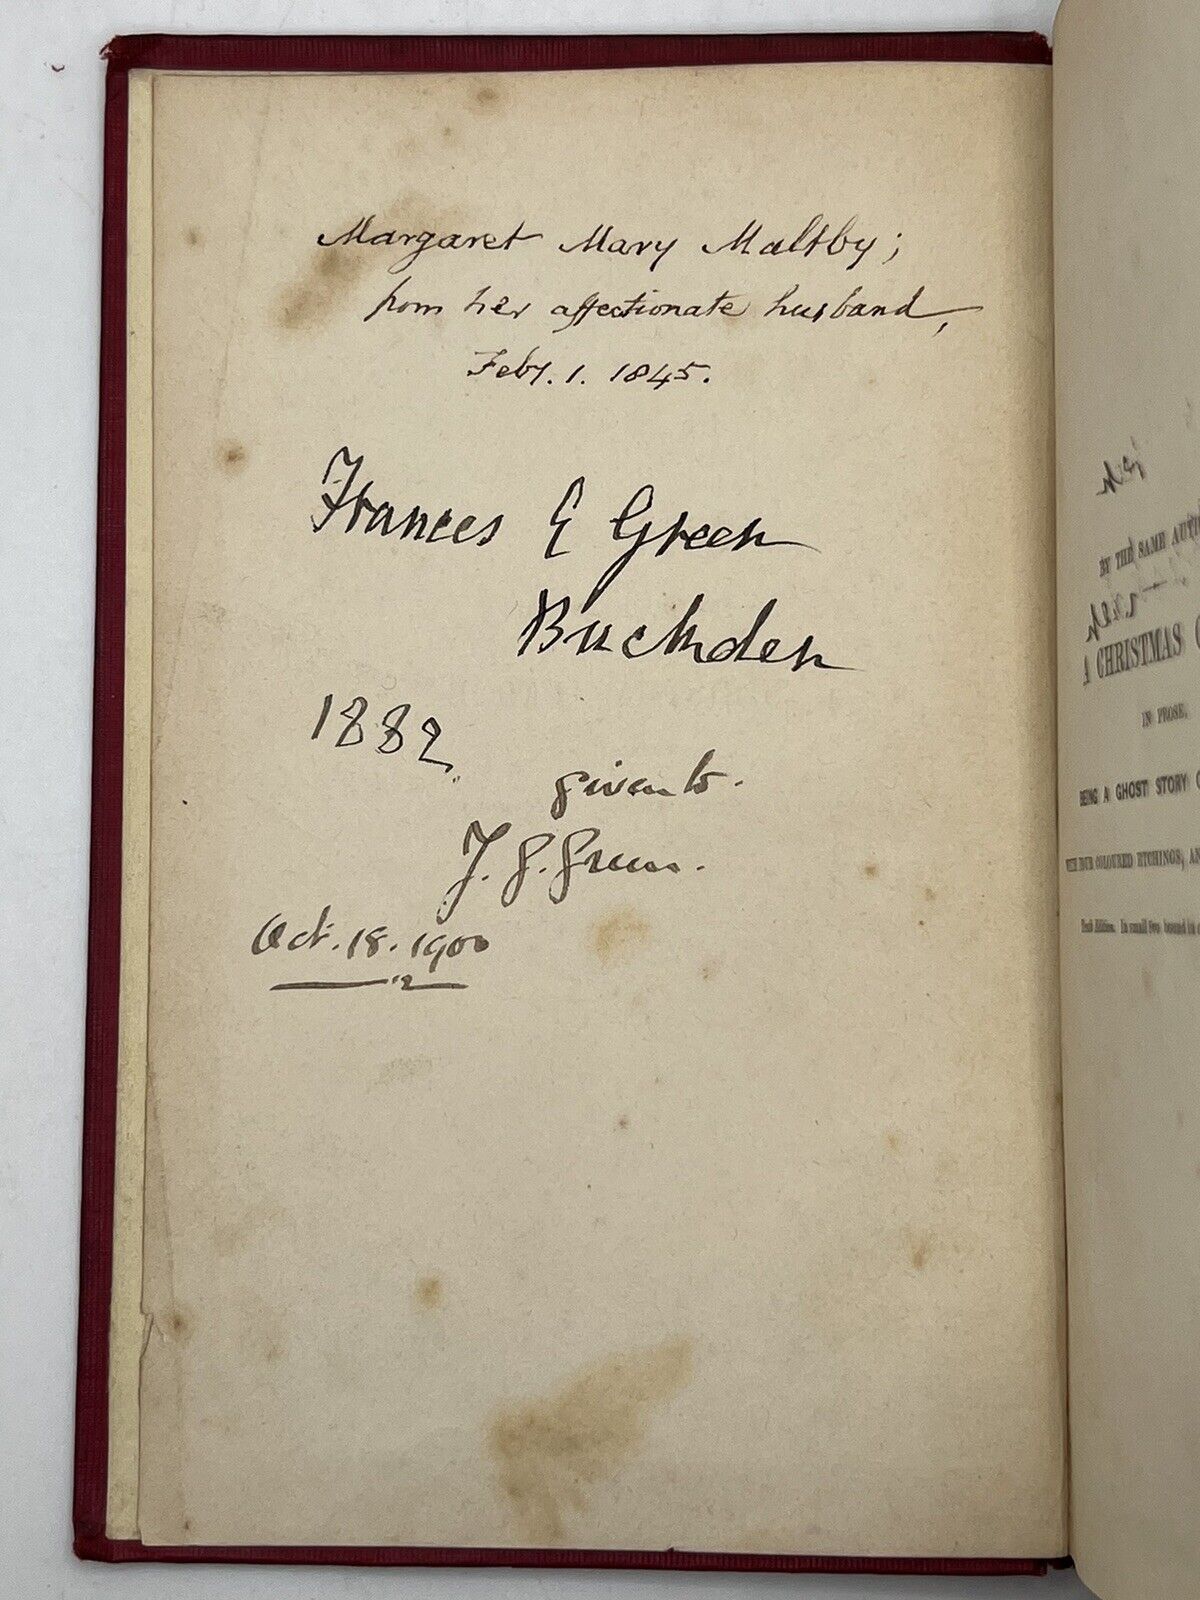 Margaret Mary Maltby;
from her affectionate husband,
Feby. 1. 1845.
Frances E Green
Buckden
1882.
given to.
J. G. Green.
Oct. 18. 1900
BY THE SAME AUTH
A CHRISTMAS C
IN PROSE,
BEING A GHOST STORY O
COLOURED ETCHINGS; AN
Tenth Edition. In small 8vo bound in c